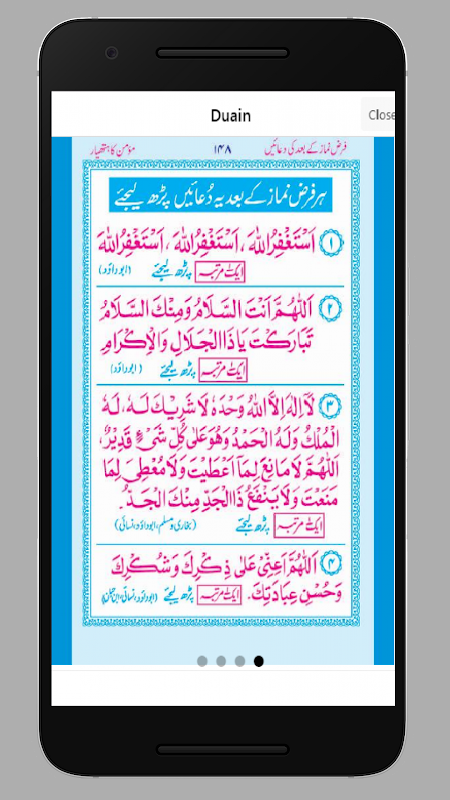 Duain
Close
فرض نماز کے بعد کی دعائیں ۱۴۸ مؤمن کا ہتھیار
ہر فرض نماز کے بعد یہ دُعائیں پڑھ لیجئے
۱ اَسْتَغْفِرُ اللّٰهَ ، اَسْتَغْفِرُ اللّٰهَ ، اَسْتَغْفِرُ اللّٰهَ
ایک مرتبہ پڑھ لیجئے (ابوداؤد)
۲ اَللّٰهُمَّ اَنْتَ السَّلَامُ وَمِنْكَ السَّلَامُ
تَبَارَكْتَ يَا ذَا الْجَلَالِ وَالْاِكْرَامِ
ایک مرتبہ پڑھ لیجئے (ابوداؤد)
۳ لَآ اِلٰهَ اِلَّا اللّٰهُ وَحْدَهٗ لَا شَرِيْكَ لَهٗ، لَهُ
الْمُلْكُ وَلَهُ الْحَمْدُ وَهُوَ عَلٰى كُلِّ شَىْءٍ قَدِيْرٌ،
اَللّٰهُمَّ لَا مَانِعَ لِمَآ اَعْطَيْتَ وَلَا مُعْطِىَ لِمَا
مَنَعْتَ وَلَا يَنْفَعُ ذَا الْجَدِّ مِنْكَ الْجَدُّ.
ایک مرتبہ پڑھ لیجئے (بخاری ومسلم، ابوداؤد، نسائی)
۴ اَللّٰهُمَّ اَعِنِّىْ عَلٰى ذِكْرِكَ وَشُكْرِكَ
وَحُسْنِ عِبَادَتِكَ. ایک مرتبہ پڑھ لیجئے (ابوداؤد، نسائی، ابن حبان)